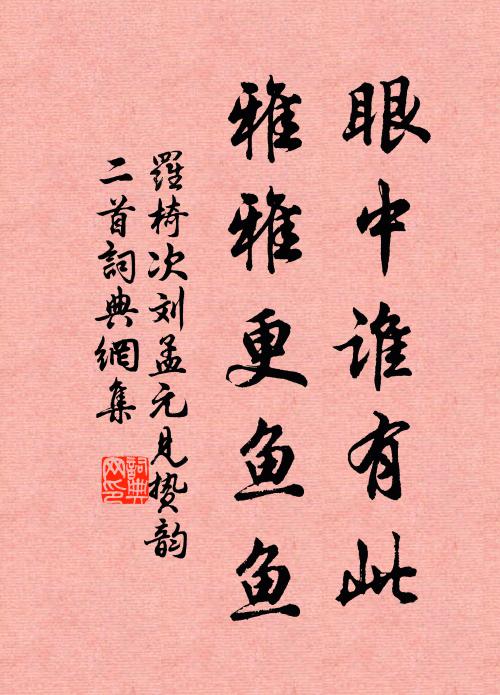 眼中谁有此
雅雅更鱼鱼
羅椅次刘孟元见贽韵
二首詞典網集
詞典网印